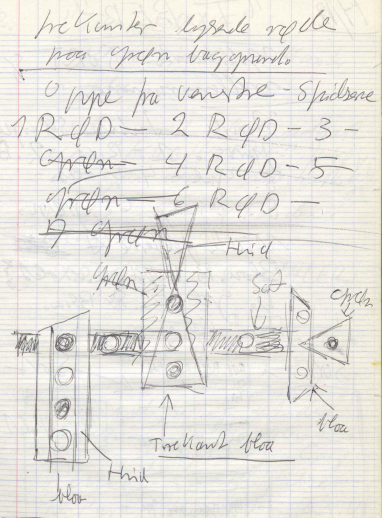 trekanter lysende røde
paa grøn baggrund.
Oppe fra venstre - Spidserne
1 RøD — 2 RøD - 3 -
Grøn — 4 RøD - 5
grøn — 6 RøD —
7 grøn
hvid
grøn
gul
grøn
blaa
Trekant blaa
hvid
blaa